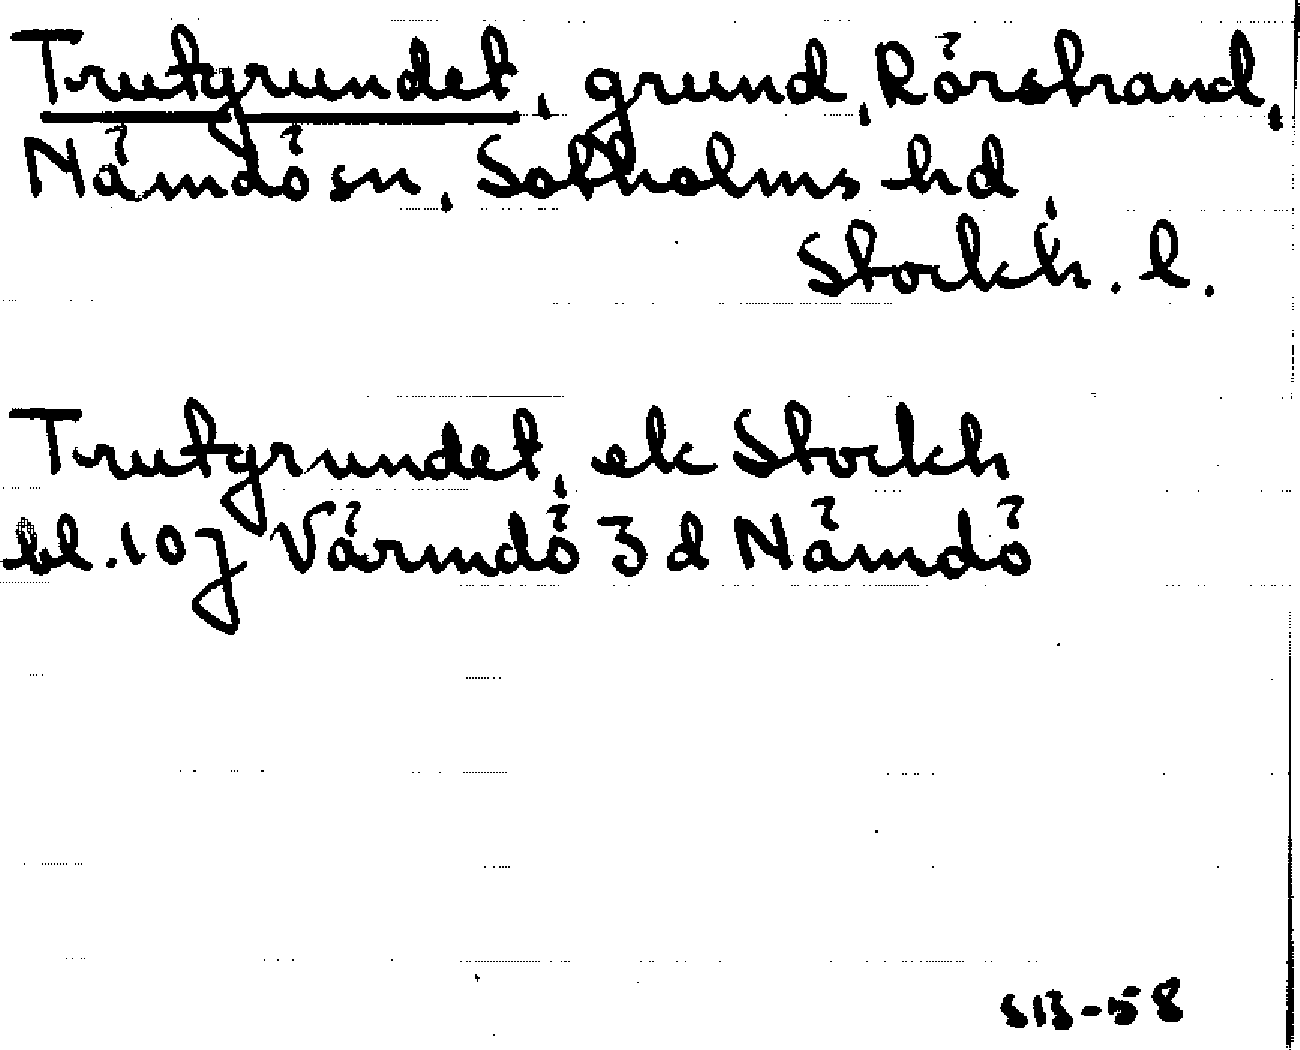 Trutgrundet, grund, Rörstrand,
Nämdö sn, Sotholms hd,
Stockh. l.
Trutgrundet, ek Stockh
bl. 107 Värmdö 3 d Nämdö
SB-58